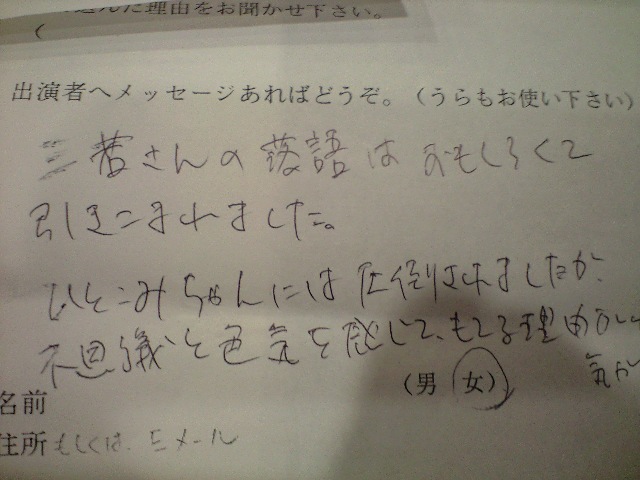 込んだ理由をお聞かせ下さい。
(
出演者へメッセージあればどうぞ。(うらもお使い下さい)
三若さんの落語はおもしろくて
引きこまれました。
ひとみちゃんには圧倒されましたが、
不思議と色気を感じて、もてる理由が
(男 女) 気が
名前
住所もしくは、Eメール